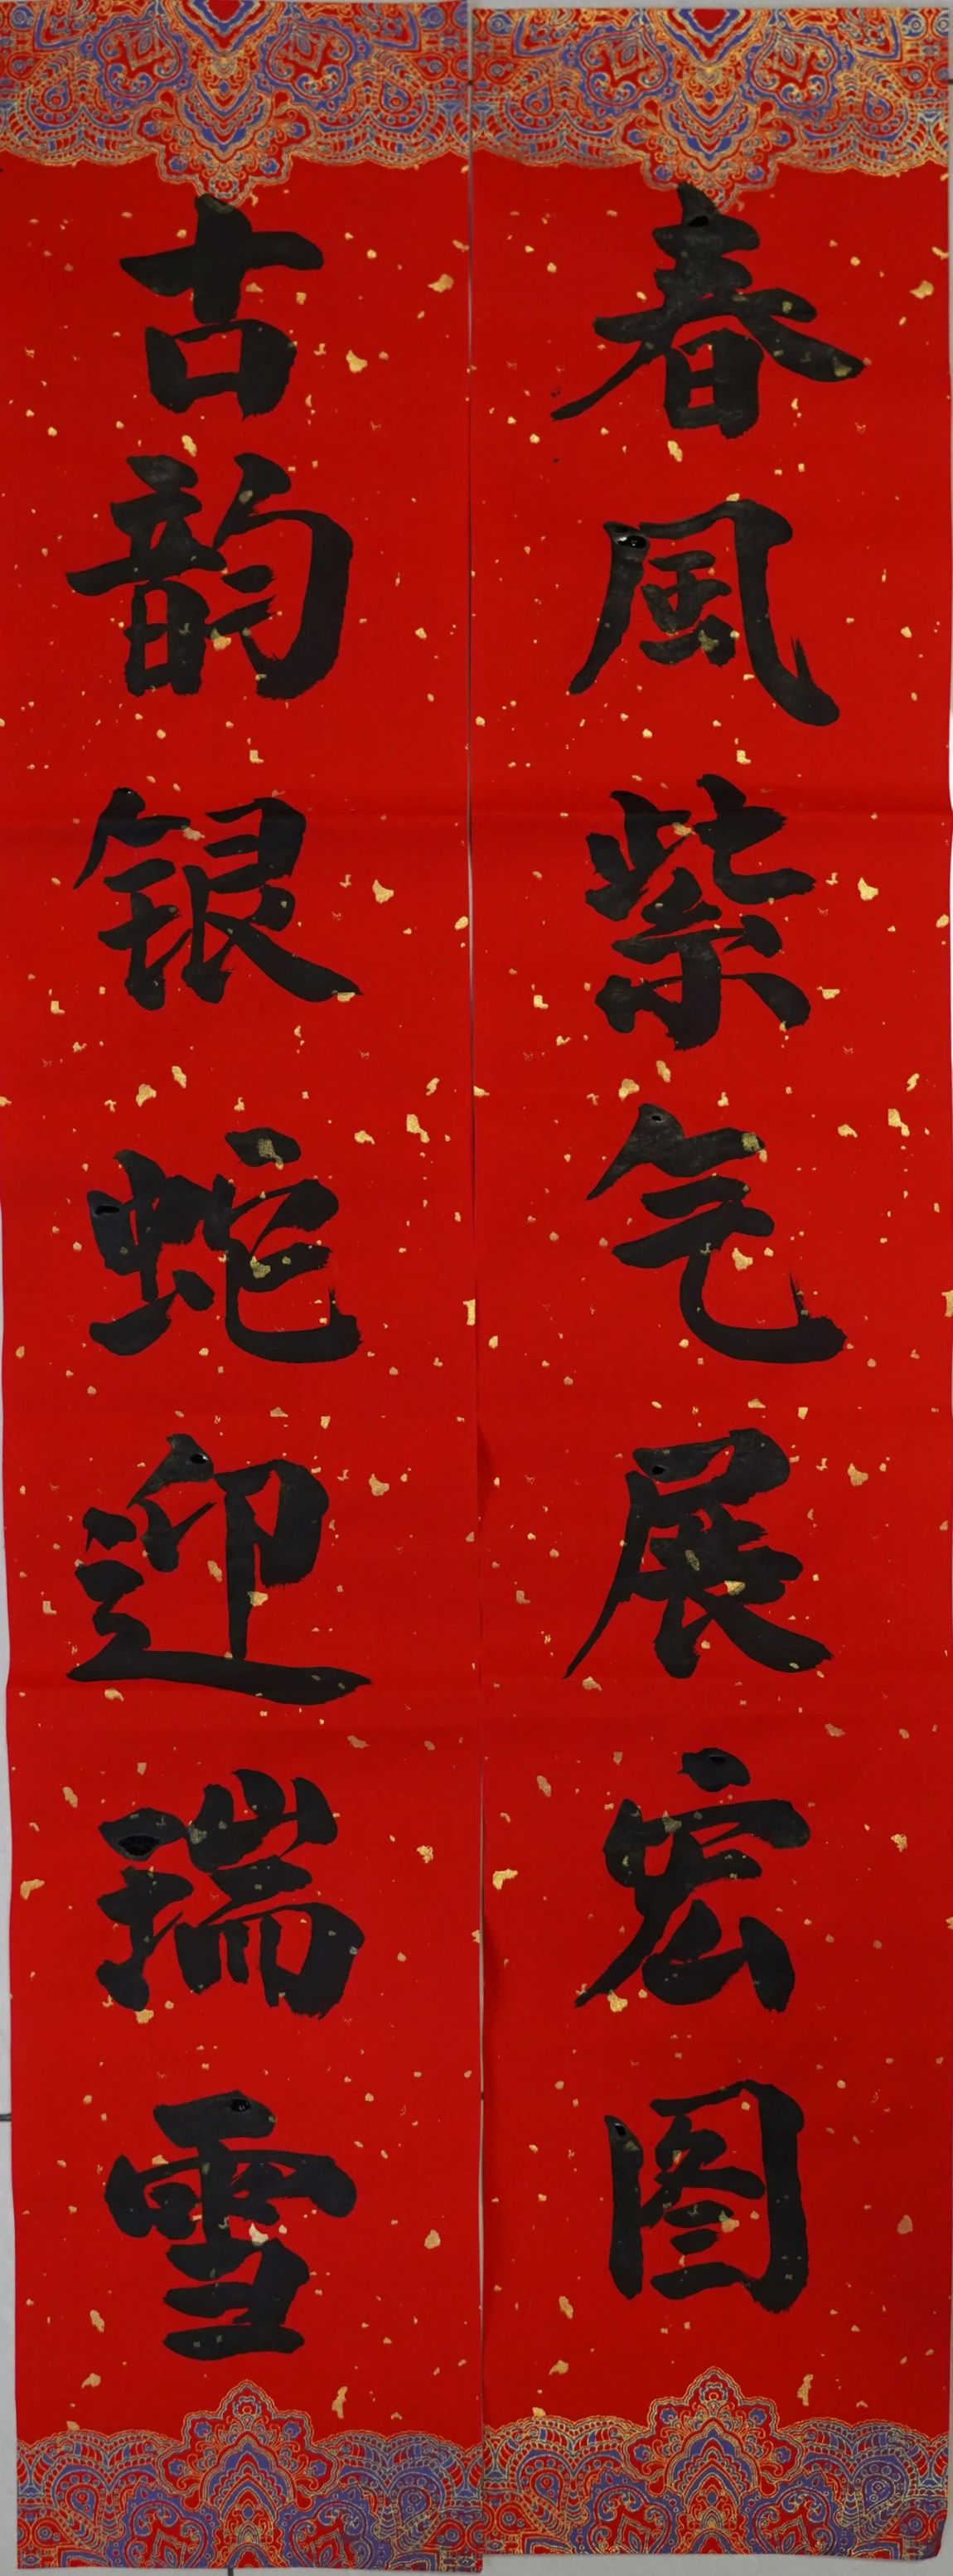 春風紫气展宏图
古韵银蛇迎瑞雪